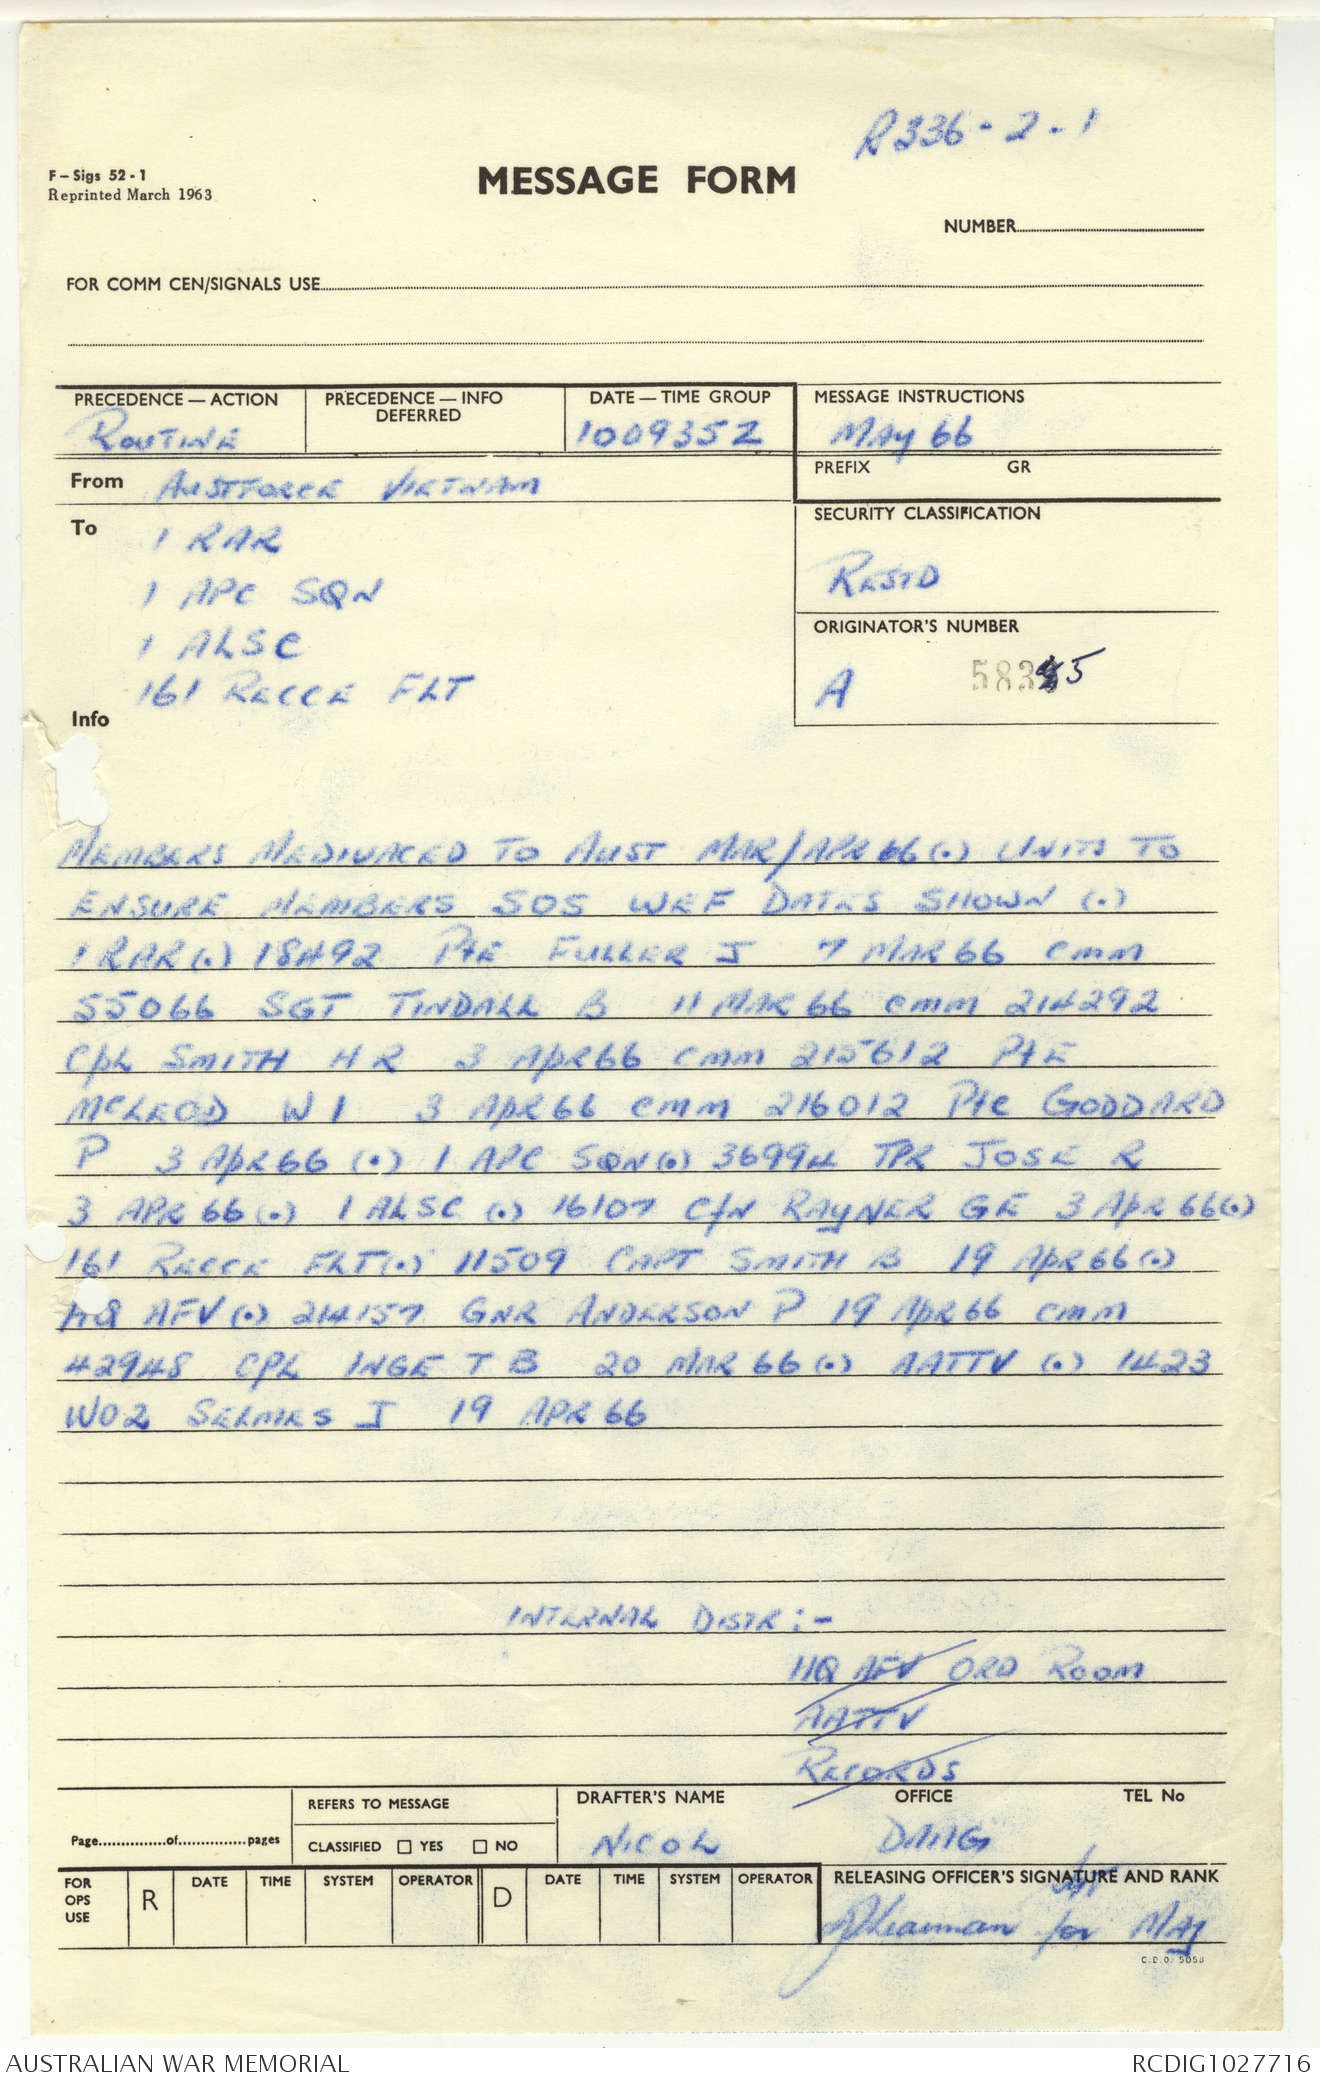 R336-2-1
F - Sigs 52 - 1
Reprinted March 1963
MESSAGE FORM
NUMBER
FOR COMM CEN/SIGNALS USE
PRECEDENCE — ACTION
ROUTINE
PRECEDENCE — INFO
DEFERRED
DATE — TIME GROUP
100935Z
MESSAGE INSTRUCTIONS
MAY 66
PREFIX GR
From AUSTFORCE VIETNAM
To 1 RAR
1 APC SQN
1 ALSC
161 RECCE FLT
Info
SECURITY CLASSIFICATION
RESTD
ORIGINATOR'S NUMBER
A 583 5
MEMBERS MEDIVACED TO AUST MAR/APR 66 (.) UNITS TO
ENSURE MEMBERS SOS WEF DATES SHOWN (.)
1 RAR (.) 18492 PTE FULLER J 7 MAR 66 CMM
55066 SGT TINDALL B 11 MAR 66 CMM 214292
CPL SMITH H R 3 APR 66 CMM 215612 PTE
MCLEOD W I 3 APR 66 CMM 216012 PTE GODDARD
P 3 APR 66 (.) 1 APC SQN (.) 36994 TPR JOSE R
3 APR 66 (.) 1 ALSC (.) 16107 CFN RAYNER GE 3 APR 66 (.)
161 RECCE FLT (.) 11509 CAPT SMITH B 19 APR 66 (.)
HQ AFV (.) 214157 GNR ANDERSON P 19 APR 66 CMM
42948 CPL INGE T B 20 MAR 66 (.) AATTV (.) 1423
WO2 SELMES J 19 APR 66
INTERNAL DISTR :-
HQ AFV ORD ROOM
AATTV
RECORDS
Page...............of...............pages
REFERS TO MESSAGE
CLASSIFIED YES NO
DRAFTER'S NAME
NICOL
OFFICE
DAAG
TEL No
FOR
OPS
USE
R DATE TIME SYSTEM OPERATOR D DATE TIME SYSTEM OPERATOR
RELEASING OFFICER'S SIGNATURE AND RANK
for MAJ
C.D.O. 5058
AUSTRALIAN WAR MEMORIAL
RCDIG1027716